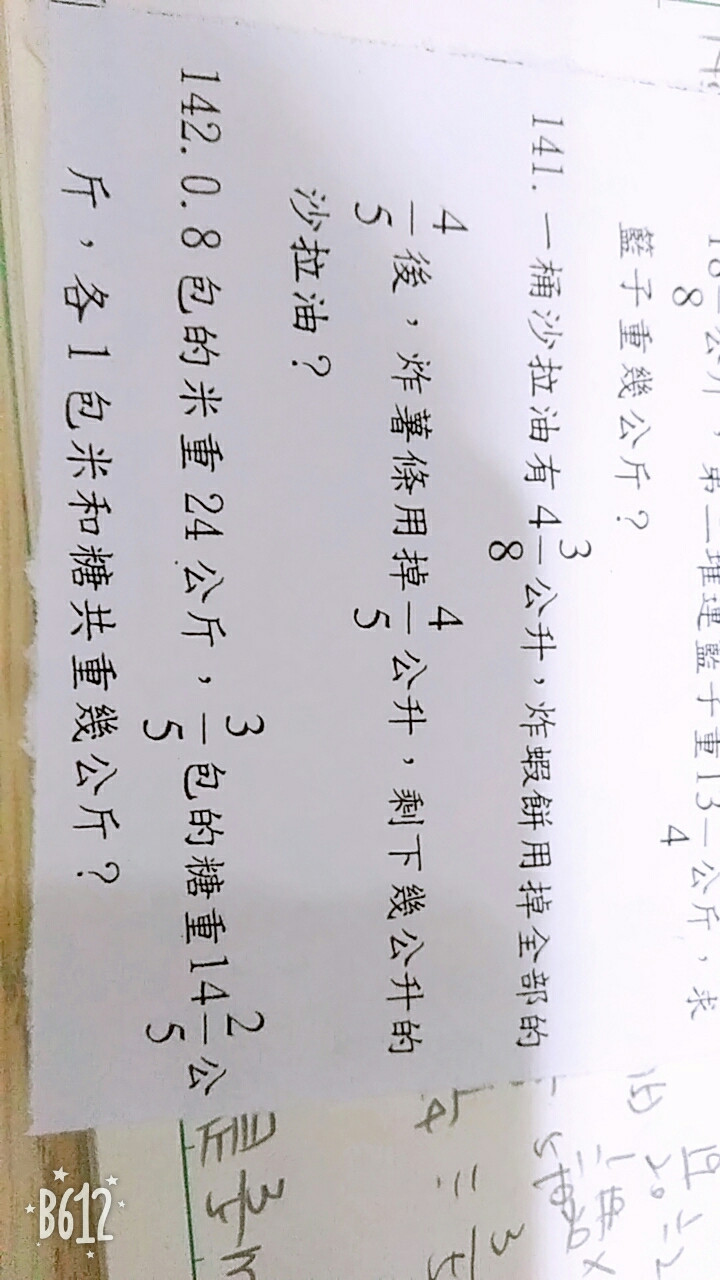 18—/8公斤，第二堆連籃子重13—/4公斤，求
籃子重幾公斤？
141. 一桶沙拉油有4 3/8公升，炸蝦餅用掉全部的
4/5後，炸薯條用掉4/5公升，剩下幾公升的
沙拉油？
142. 0.8包的米重24公斤，3/5包的糖重14 2/5公
斤，各1包米和糖共重幾公斤？
B612